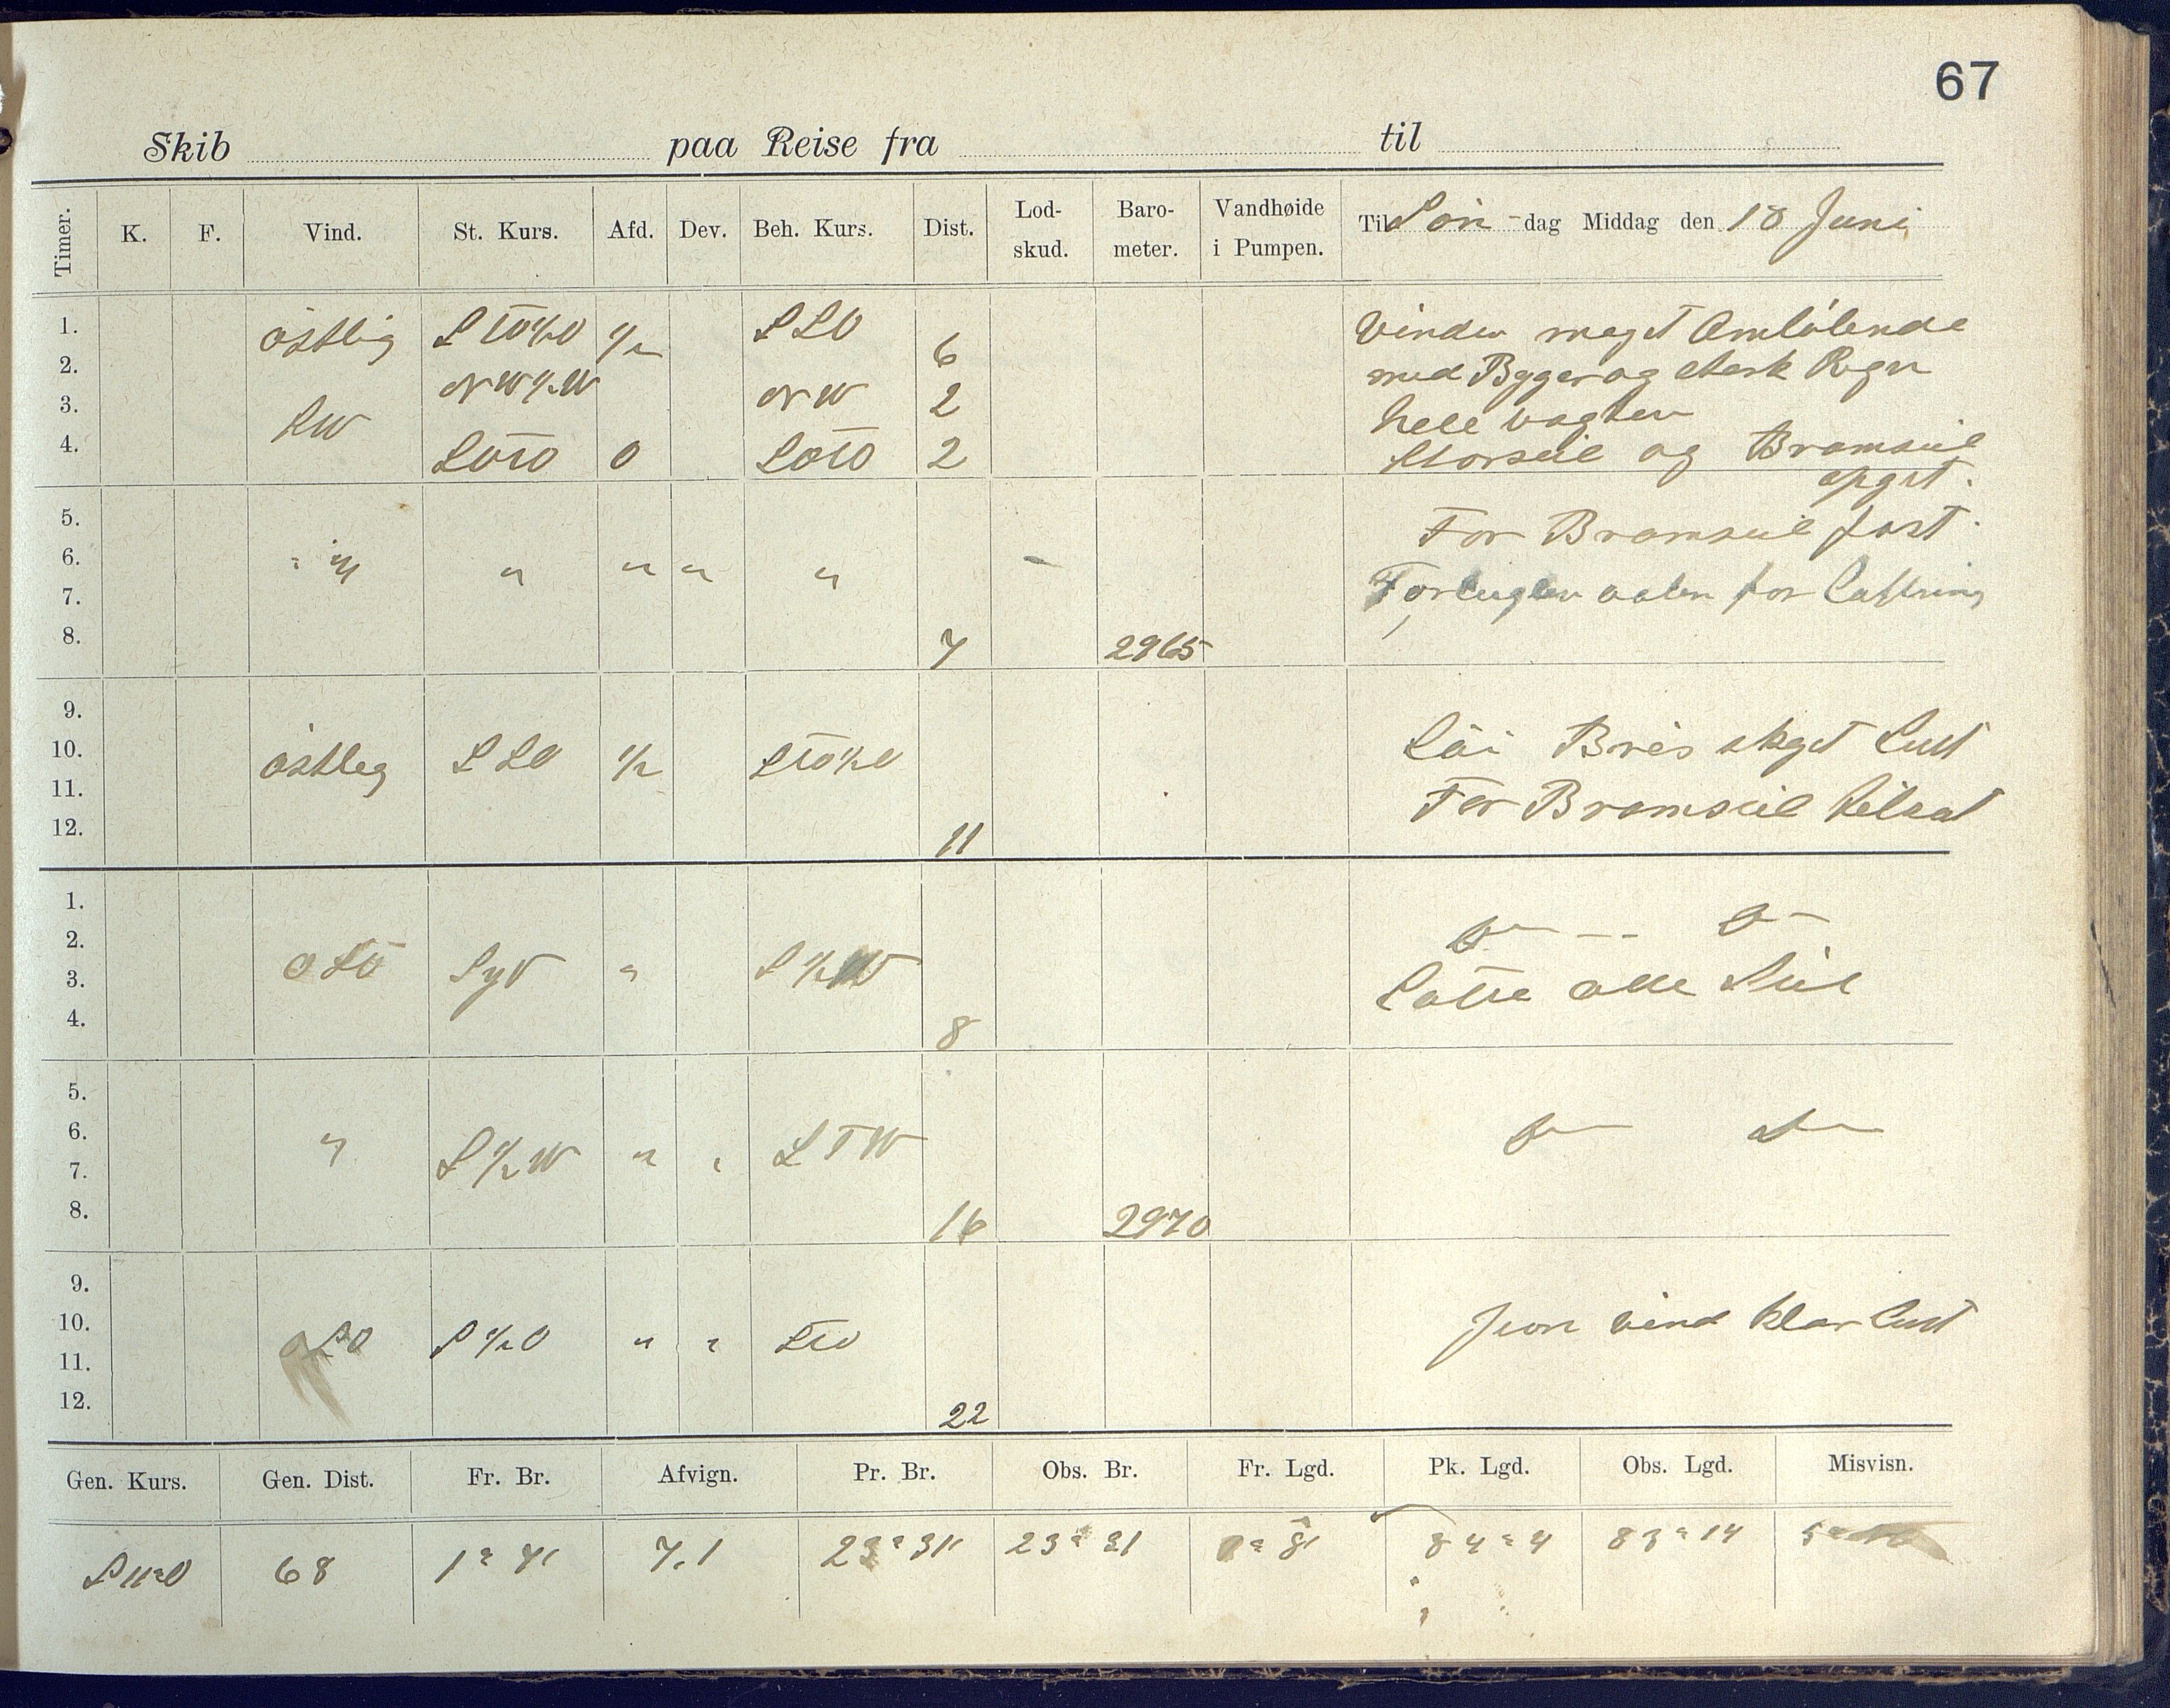 67
Skib paa Reise fra til
Timer. K. F. Vind. St. Kurs. Afd. Dev. Beh. Kurs. Dist. Lod-skud. Baro-meter. Vandhøide i Pumpen. Til Søn-dag Middag den 18 Juni
1. östlig STO½O ½ SSO 6 Vinden meget Omlöbende
2. NW½W NW 2 med Byger og sterk Regn
3. SW hele vagten
4. SOTO 0 SOTO 2 Storseil og Bramseil
opgit.
5. For Bramseil fast.
6. " " " " " "
7. for
8. 7 2965
9.
10. östleg SSO ½ STO½O Löi Bris skyet Luft
11. For Bramseil tilsat
12. 11
1.
2.
3. OSO Syd " S½W alle Seil
4. 8
5.
6. " S½W " " STW
7.
8. 16 2970
9.
10. OSO S½O " " STO Jevn vind klar Luft
11.
12. 22
Gen. Kurs. Gen. Dist. Fr. Br. Afvign. Pr. Br. Obs. Br. Fr. Lgd. Pk. Lgd. Obs. Lgd. Misvisn.
S11°O 68 1° 7' 7.1 23° 31' 23° 31 0° 8' 84° 4 83° 14